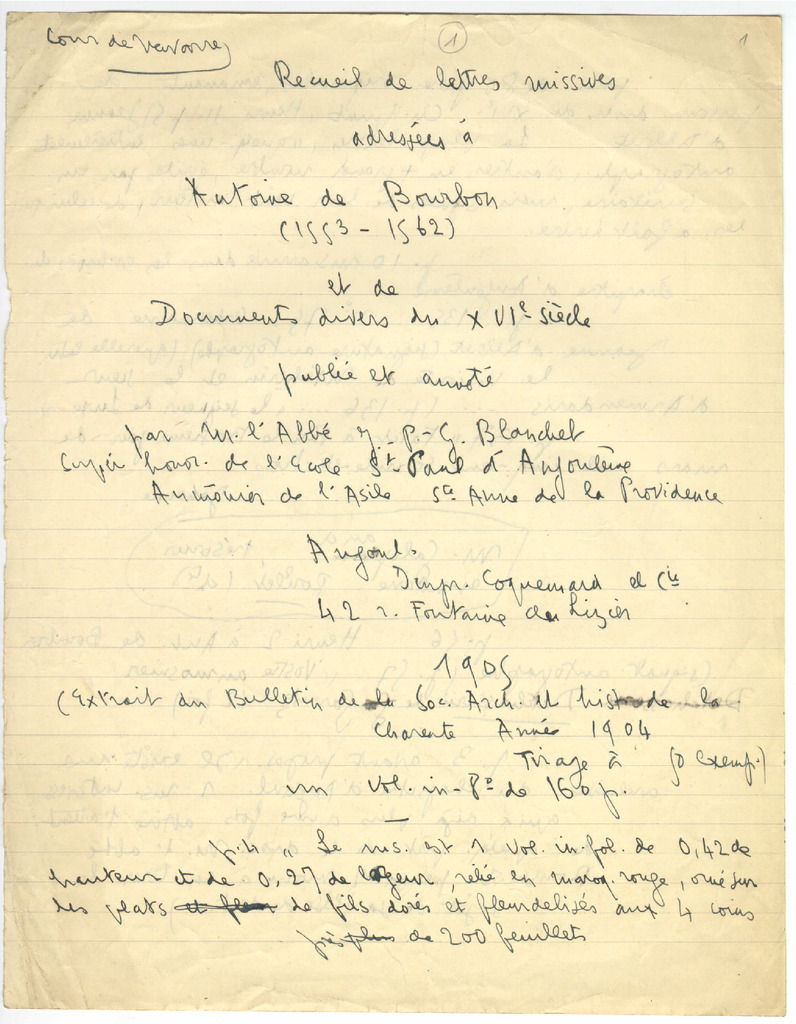 Cour de Navarre
1
1
Recueil de lettres missives
adressées à
Antoine de Bourbon
(1553 - 1562)
et de
Documents divers du XVIe siècle
publié et annoté
par M. l'Abbé J. P-G. Blanchet
Supér honor. de l'Ecole St Paul d'Angoulême
Aumônier de l'Asile Ste Anne de la Providence
Angoul.
Impr. Coquemard et Cie
42 r. Fontaine du Lizier
1905
(Extrait du Bulletin de la Soc. Arch. et hist de la
Charente Année 1904
Tirage à 50 exemp.)
un vol. in-8o de 160 p.
p. 4 " Le ms. est 1 vol. in-fol. de 0,42 de
hauteur et de 0,27 de largeur, relié en maroq. rouge, orné sur
des plats et fleur de fils dorés et fleurdelisés aux 4 coins
près plus de 200 feuillets